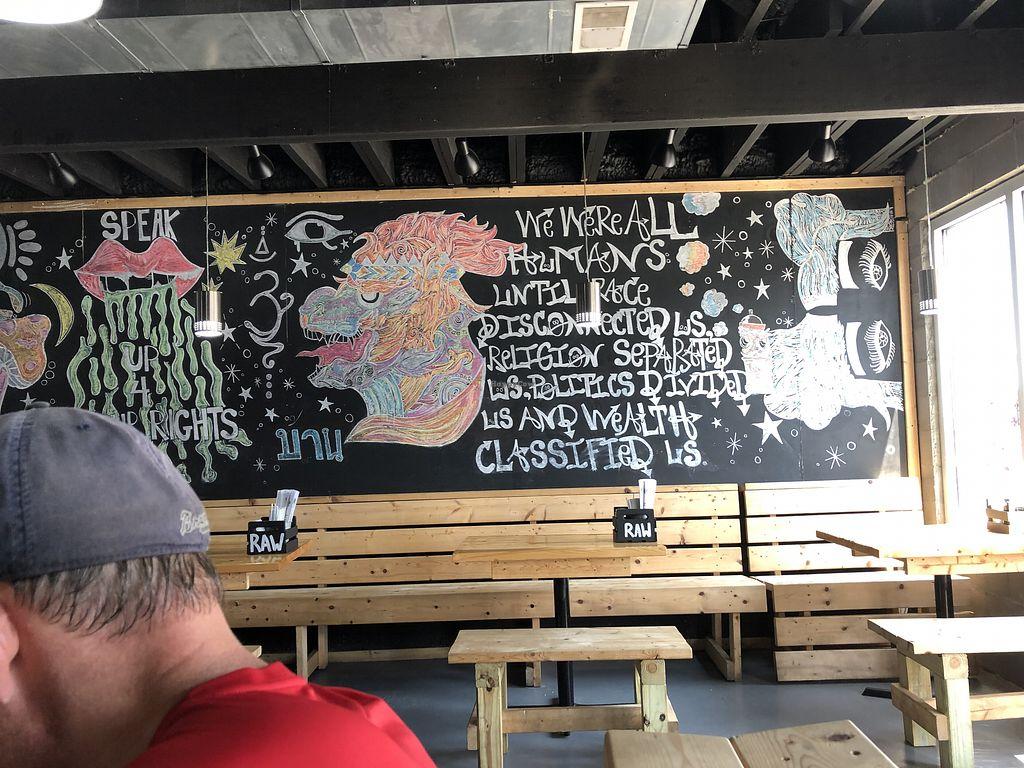 SPEAK
UP
4
RIGHTS
บาน
WE WERE ALL
HUMANS
UNTIL RACE
DISCONNECTED US,
RELIGION SEPARATED
US, POLITICS DIVIDED
US AND WEALTH
CLASSIFIED US.
RAW
RAW